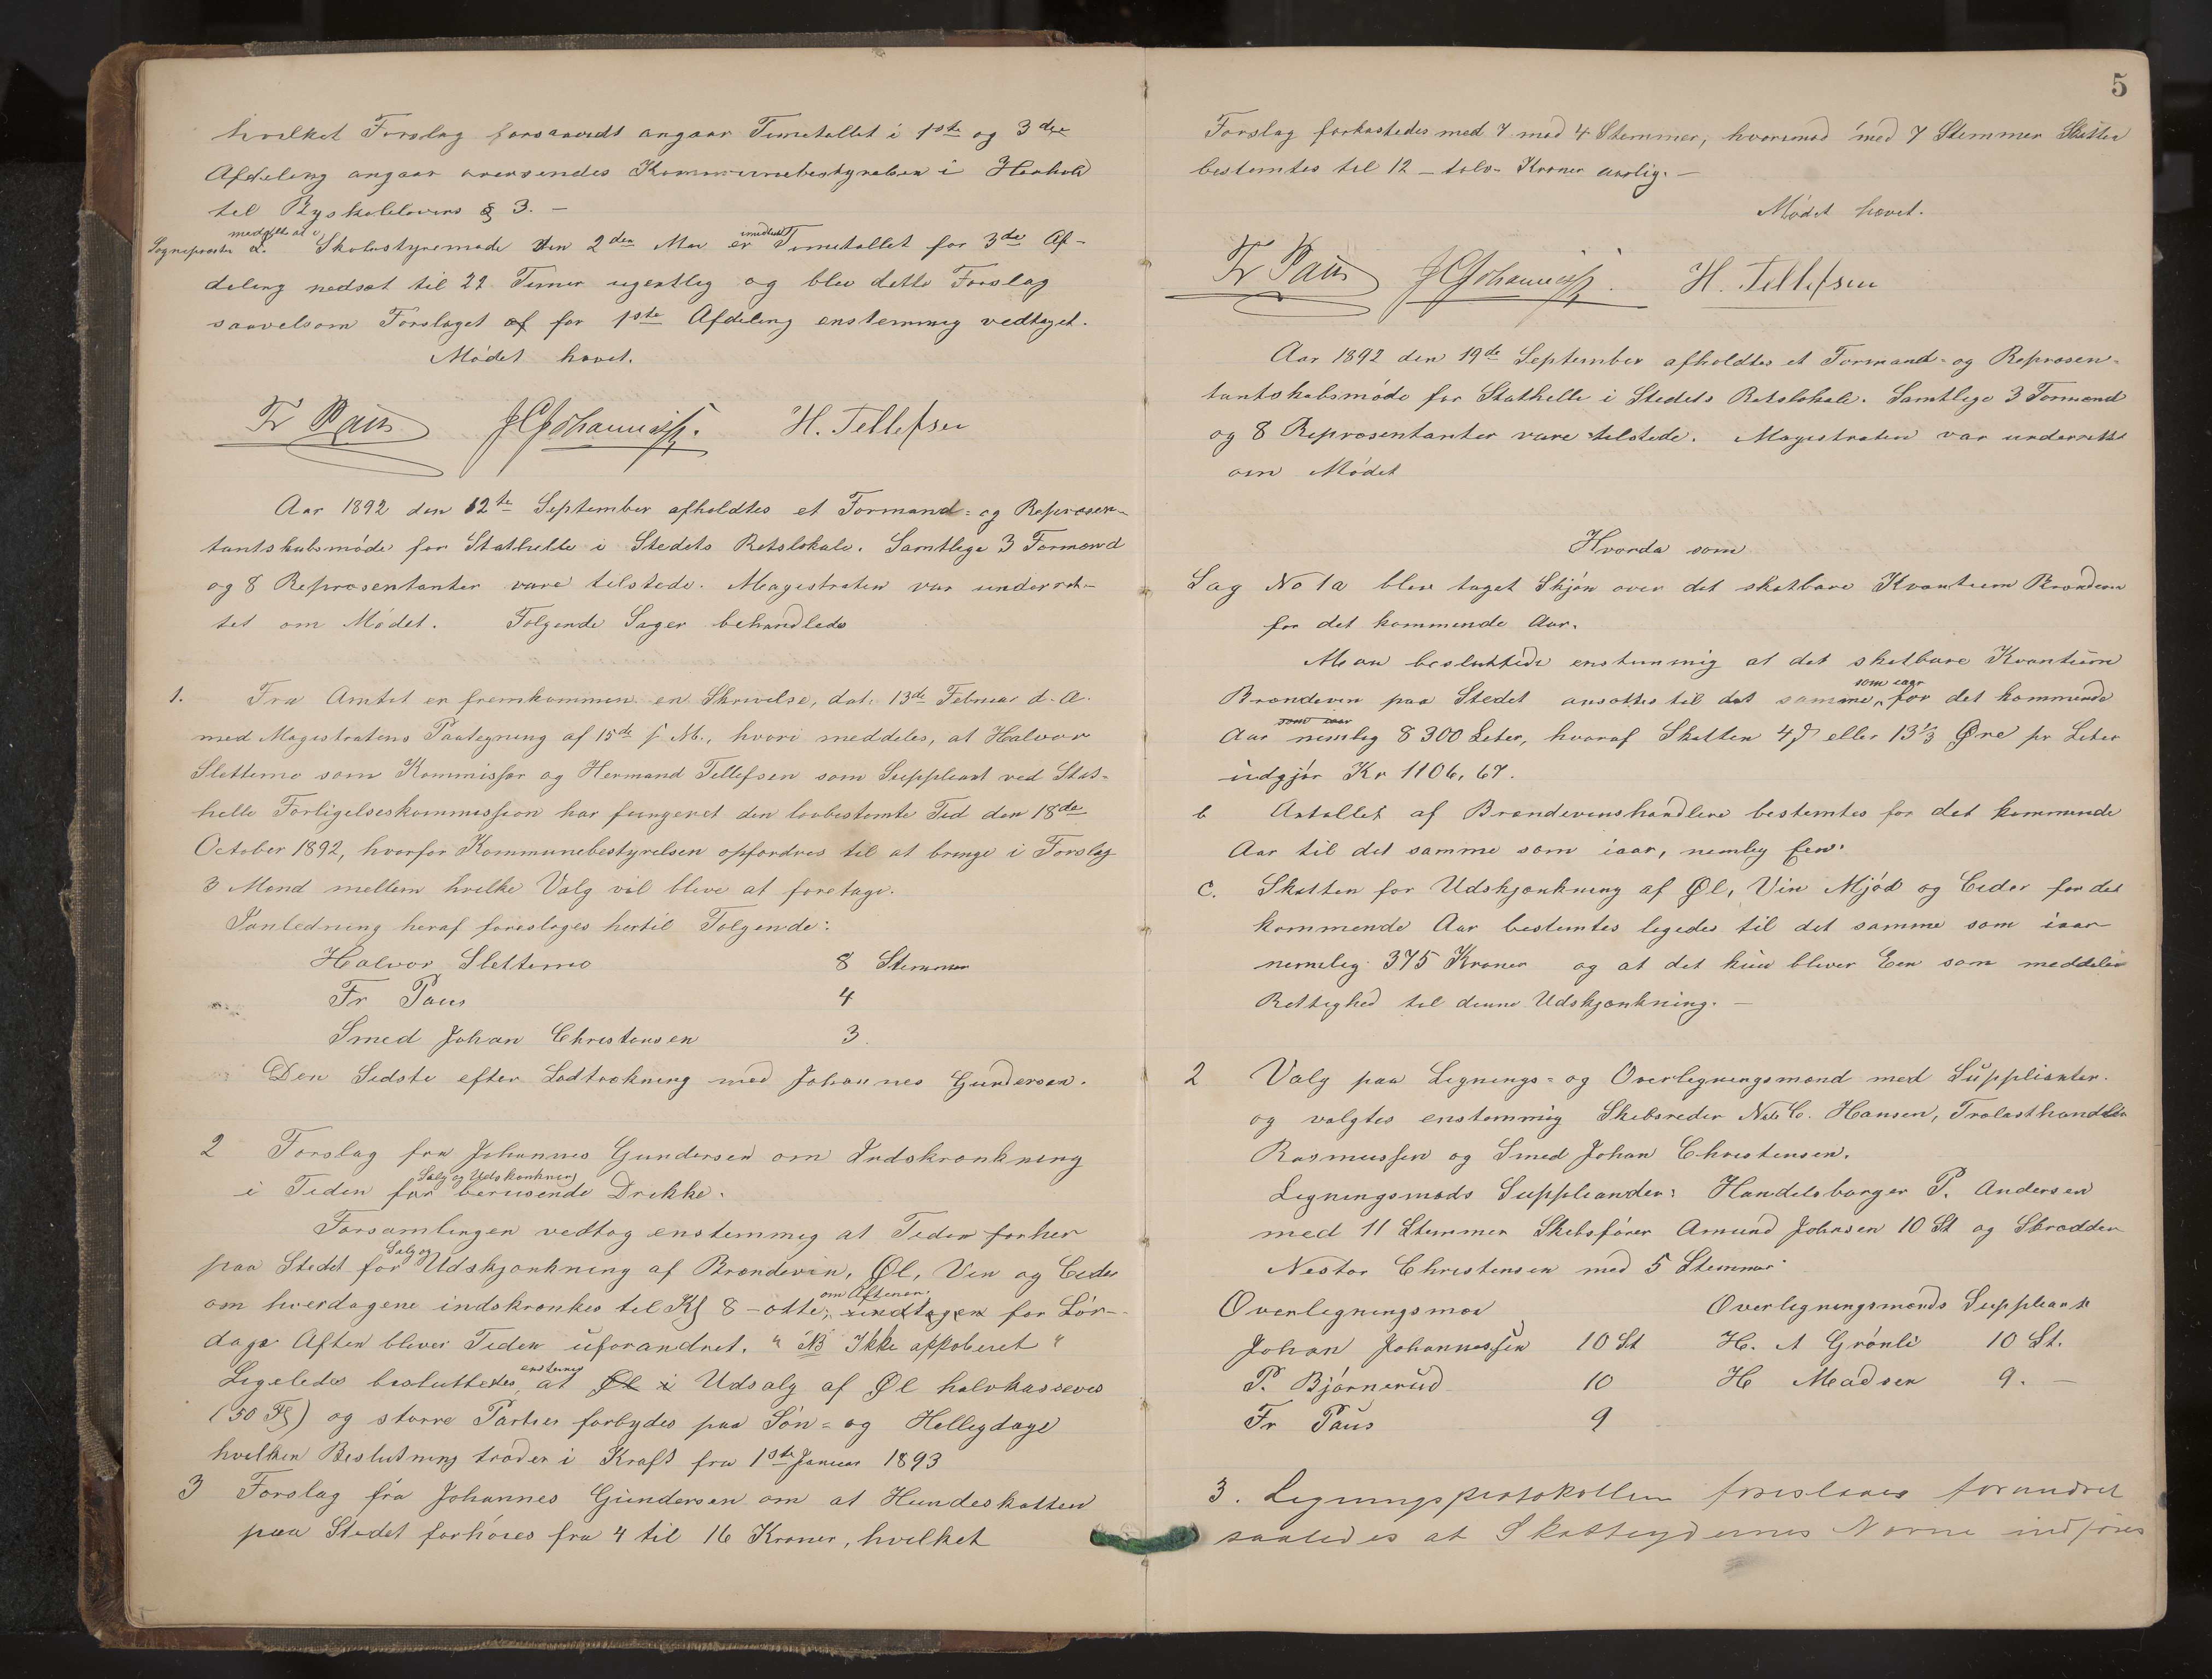 hvilket Forslag forsaavidt angaar Timetallet i 1ste og 3die
Afdeling angaar oversendes Kommunebestyrelsen i Henhold
til Byskolelovens § 3. —
Sognepresten meddelte at i
Skolestyremøde den 2den Mai er imidlertid Timetallet for 3de Af-
deling nedsat til 22 Timer ugentlig og blev dette Forslag
saavelsom Forslaget af for 1ste Afdeling enstemmig vedtaget.
Mødet hævet.
Fr Paus J C Johannessen. H. Tellefsen
Aar 1892 den 12te September afholdtes et Formand- og Repræsen-
tantskabsmøde for Stathelle i Stedets Retslokale. Samtlige 3 Formænd
og 8 Repræsentanter vare tilstede. Magistraten var underret-
tet om Mødet. Følgende Sager behandledes
1. Fra Amtet er fremkommen en Skrivelse, dat. 13de Februar d. A.
med Magistratens Paategning af 15de s. M., hvori meddeles, at Halvor
Slettemo som Kommissær og Hermand Tellefsen som Suppleant ved Stat-
helle Forligelseskommission har fungeret den lovbestemte Tid den 18de
October 1892, hvorfor Kommunebestyrelsen opfordres til at bringe i Forslag
3 Mænd mellem hvilke Valg vil blive at foretage.
I anledning heraf foreslages hertil Følgende:
Halvor Slettemo 8 Stemmer
Fr Paus 4
Smed Johan Christensen 3.
Den Sidste efter Lodtrækning med Johannes Gundersen.
2 Forslag fra Johannes Gundersen om Indskrænkning
i Tiden for Salg og Udskjænkning berusende Drikke.
Forsamlingen vedtog enstemmig at Tiden for her
paa Stedet for Salg og Udskjænkning af Brændevin, Øl, Vin og Cider
om hverdagene indskrænkes til Kl 8 – otte, om Aftenen. undtagen for Lør-
dags Aften bliver Tiden uforandret. " NB Ikke approberet "
Ligeledes besluttedes enstemmig at Øl i Udsalg af Øl halvkassevis
(50 Fl) og større Partier forbydes paa Søn- og Helligdage
hvilken Beslutning træder i Kraft fra 1ste Januar 1893
3 Forslag fra Johannes Gundersen om at Hundeskatten
paa Stedet forhøies fra 4 til 16 Kroner, hvilket
5
Forslag forkastedes med 7 mod 4 Stemmer, hvorimod med 7 Stemmer Skatten
bestemtes til 12 – tolv – Kroner aarlig. —
Mødet hævet.
Fr Paus J C Johannessen. H. Tellefsen
Aar 1892 den 19de September afholdtes et Formand- og Repræsen-
tantskabsmøde for Stathelle i Stedets Retslokale. Samtlige 3 Formænd
og 8 Repræsentanter vare tilstede. Magistraten var underrettet
om Mødet
Hvorda som
Sag No 1a blev taget Skjøn over det skatbare Kvantum Brændevin
for det kommende Aar.
Man besluttede enstemmig at det skatbare Kvantum
Brændevin paa Stedet ansættes til det samme som iaar for det kommende
Aar som iaar nemlig 8300 Liter, hvoraf Skatten 4 ß eller 13⅓ Øre pr Liter
udgjør Kr 1106,67.
b Antallet af Brændevinshandlere bestemtes for det kommende
Aar til det samme som iaar, nemlig Een.
C. Skatten for Udskjænkning af Øl, Vin Mjød og Cider for det
kommende Aar bestemtes ligedes til det samme som iaar
nemlig 375 Kroner og at det kun bliver Een som meddeles
Rettighed til denne Udskjænkning. —
2 Valg paa Lignings- og Overligningsmænd med Supplianter.
og valgtes enstemmig Skibsreder Nils C. Hansen, Trælasthandler
Rasmussen og Smed Johan Christensen.
Ligningsmænds Suppleander: Handelsborger P. Andersen
med 11 Stemmer Skibsfører Amund Johnsen 10 St og Skrædder
Nestor Christensen med 5 Stemmer
Overligningsmæn Overligningsmænds Suppleante
Johan Johannessen 10 St H. A Grønli 10 St.
P. Bjørnerud 10 H Madsen 9. —
Fr Paus 9
3. Ligningsprotokollen foreslaaes forandret
saaledes at Skatteydernes Navne indføres